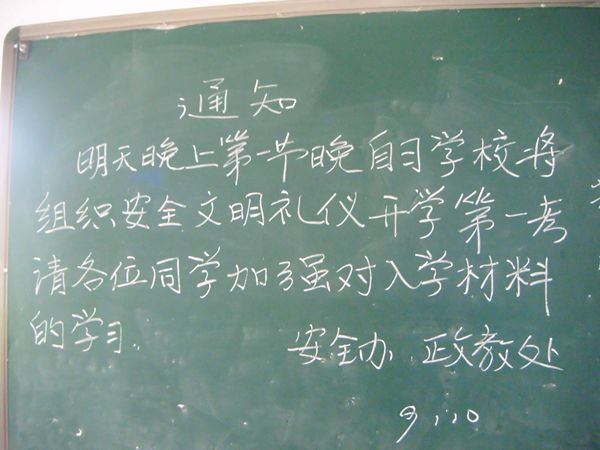 通知
明天晚上第一节晚自习学校将
组织安全文明礼仪开学第一考
请各位同学加强对入学材料
的学习.
安全办 政教处
9.10